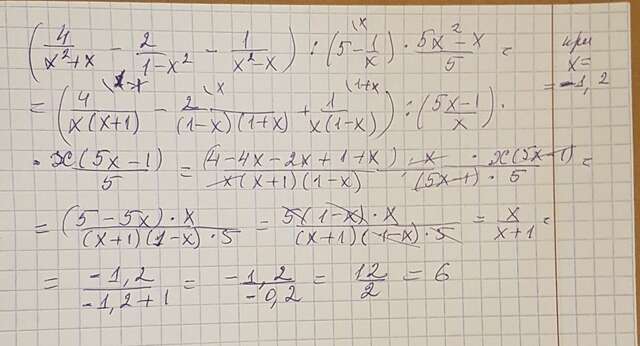 (4/(x²+x) - 2/(1-x²) - 1/(x²-x)) : (5 - 1/x) · (5x²-x)/5 = при x = -1,2
= (4/(x(x+1)) - 2/((1-x)(1+x)) + 1/(x(1-x))) : ((5x-1)/x) ·
· x(5x-1)/5 = (4-4x-2x+1+x)/(x(x+1)(1-x)) · x · x(5x-1)/((5x-1)·5) =
= (5-5x)·x/((x+1)(1-x)·5) = 5(1-x)·x/((x+1)(1-x)·5) = x/(x+1) =
= -1,2/(-1,2+1) = -1,2/-0,2 = 12/2 = 6